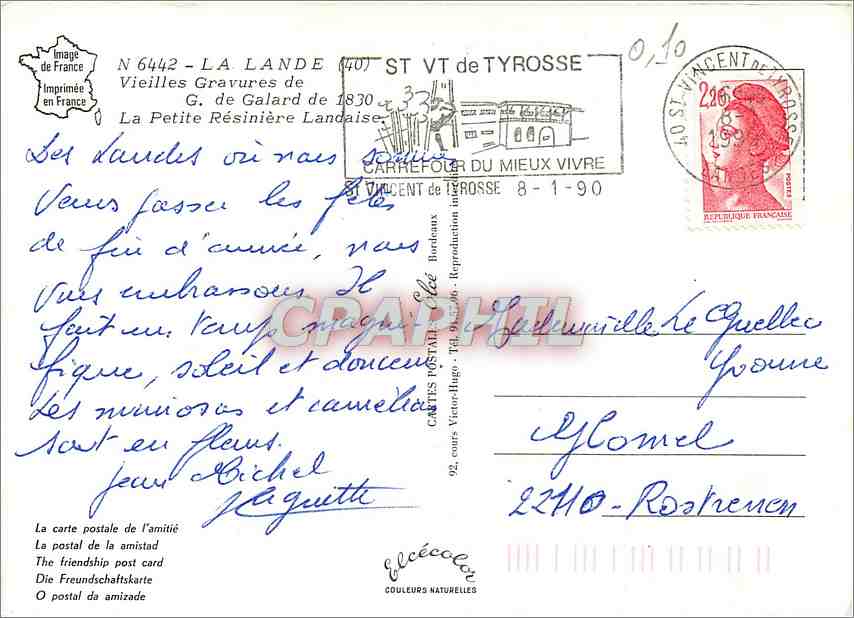 Image
de France
Imprimée
en France
N 6442 - LA LANDE (40)
Vieilles Gravures de
G. de Galard de 1830
La Petite Résinière Landaise
ST VT de TYROSSE
CARREFOUR DU MIEUX VIVRE
ST VINCENT de TYROSSE 8-1-90
0,10
40 ST-VINCENT DE TYROSSE
8-
19
LANDES
2,20
POSTES
REPUBLIQUE FRANÇAISE
Les Landes où nous sommes
venus passer les fêtes
de fin d'année, nous
vous embrassons Il
fait un temps magni-
fique, soleil et douceur.
Les mimosas et camélias
sont en fleurs.
Jean Michel
CARTES POSTALES Elcé Bordeaux
92, cours Victor-Hugo - Tél. - Reproduction interdite
CPARPHIL
Mademoiselle Le Guellec
Yvonne
Glomel
22110 - Rostrenen
La carte postale de l'amitié
La postal de la amistad
The friendship post card
Die Freundschaftskarte
O postal da amizade
Elcécolor
COULEURS NATURELLES